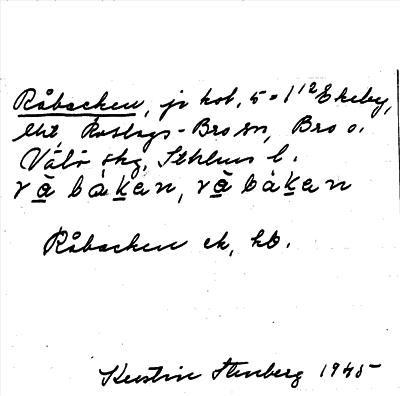 Råbacken, j kol, 5=1¹² Ekeby,
Roslags-Bro sn, Bro o.
Vätö skg, Sthlms l.
råbàḵan, råbàḵan
Råbacken ek, kb.
Kerstin Stenberg 1945